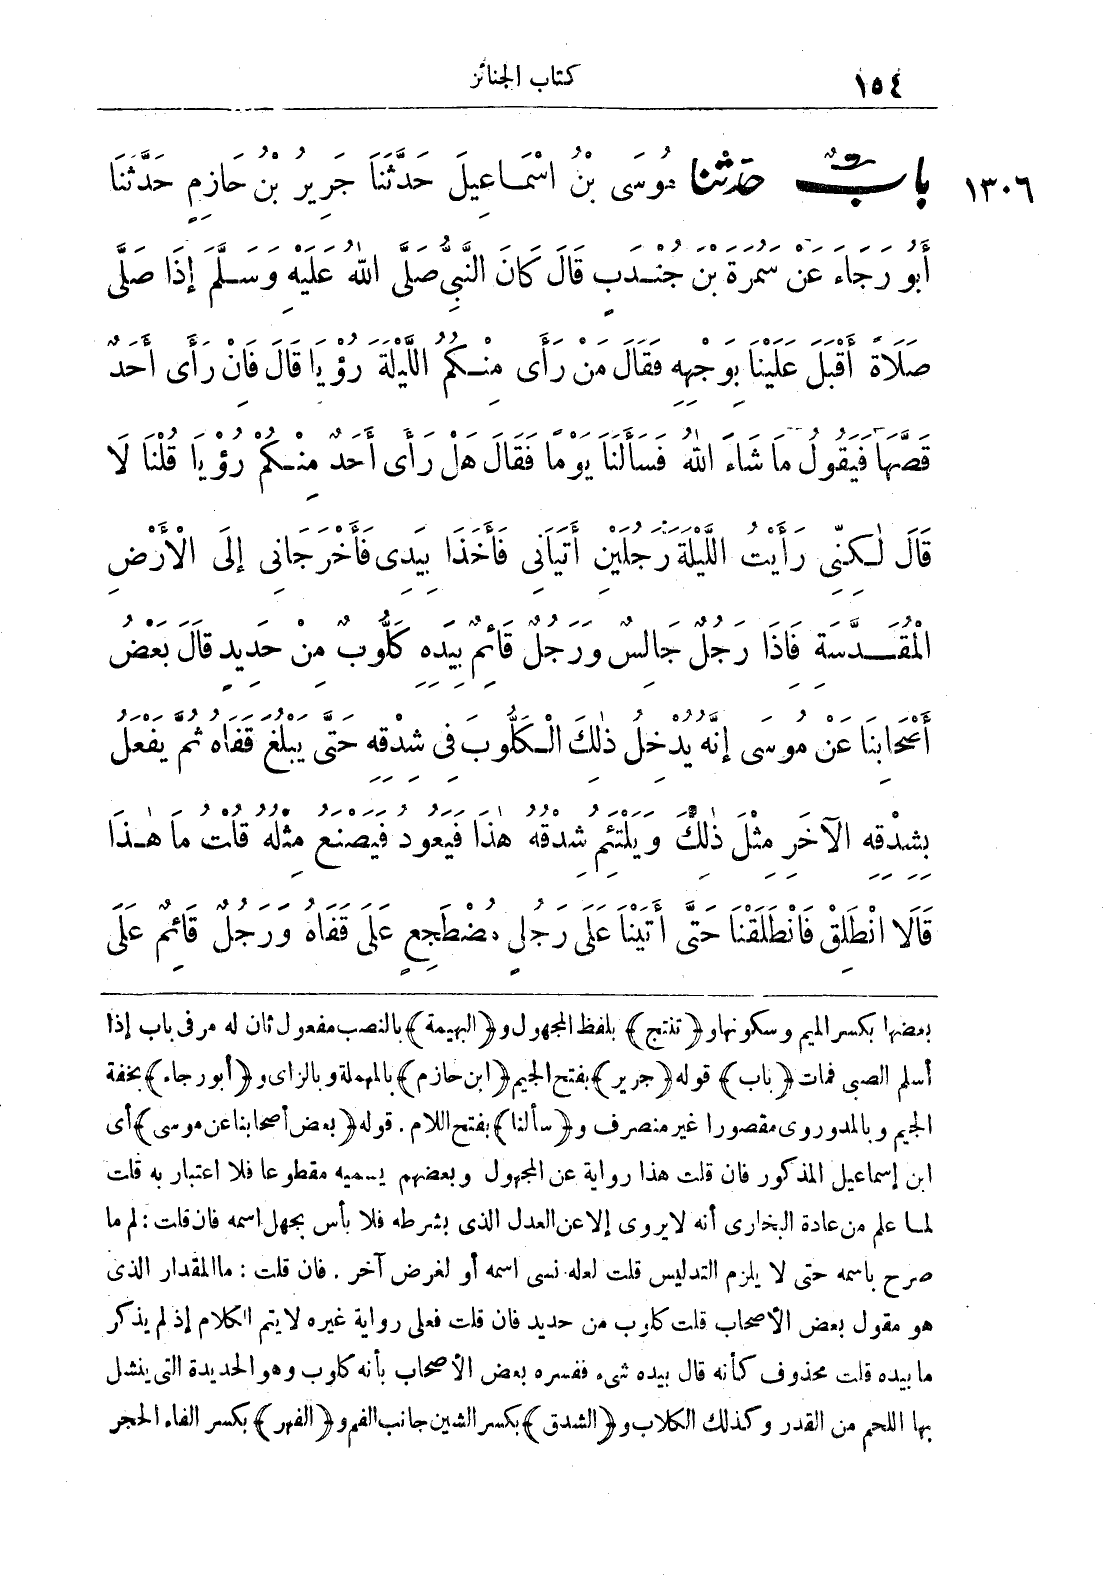 ١٥٤ كتاب الجنائز
١٣٠٦ بابٌ حَدَّثَنَا مُوسَى بْنُ اسْمَاعِيلَ حَدَّثَنَا جَرِيرُ بْنُ حَازِمٍ حَدَّثَنَا
أَبُو رَجَاءٍ عَنْ سَمُرَةَ بْنِ جُنْدَبٍ قَالَ كَانَ النَّبِيُّ صَلَّى اللهُ عَلَيْهِ وَسَلَّمَ إِذَا صَلَّى
صَلَاةً أَقْبَلَ عَلَيْنَا بِوَجْهِهِ فَقَالَ مَنْ رَأَى مِنْكُمُ اللَّيْلَةَ رُؤْيَا قَالَ فَانْ رَأَى أَحَدٌ
قَصَّهَا فَيَقُولُ مَا شَاءَ اللهُ فَسَأَلَنَا يَوْمًا فَقَالَ هَلْ رَأَى أَحَدٌ مِنْكُمْ رُؤْيَا قُلْنَا لَا
قَالَ لٰكِنِّى رَأَيْتُ اللَّيْلَةَ رَجُلَيْنِ أَتَيَانِى فَأَخَذَا بِيَدِى فَأَخْرَجَانِى إِلَى الْأَرْضِ
الْمُقَدَّسَةِ فَاذَا رَجُلٌ جَالِسٌ وَرَجُلٌ قَائِمٌ بِيَدِهِ كَلُّوبٌ مِنْ حَدِيدٍ قَالَ بَعْضُ
أَصْحَابِنَا عَنْ مُوسَى إِنَّهُ يُدْخِلُ ذٰلِكَ الْكَلُّوبَ فِى شِدْقِهِ حَتَّى يَبْلُغَ قَفَاهُ ثُمَّ يَفْعَلُ
بِشِدْقِهِ الآخَرِ مِثْلَ ذٰلِكَ وَيَلْتَئِمُ شِدْقُهُ هٰذَا فَيَعُودُ فَيَصْنَعُ مِثْلَهُ قُلْتُ مَا هٰذَا
قَالَا انْطَلِقْ فَانْطَلَقْنَا حَتَّى أَتَيْنَا عَلَى رَجُلٍ مُضْطَجِعٍ عَلَى قَفَاهُ وَرَجُلٌ قَائِمٌ عَلَى
بعضها بكسر الميم وسكونها و﴿تنتج﴾ بلفظ المجهول و﴿البهيمة﴾ بالنصب مفعول ثان له مر فى باب إذا
أسلم الصبى فمات ﴿باب﴾ قوله ﴿جرير﴾ بفتح الجيم ﴿ابن حازم﴾ بالمهملة وبالزاى و﴿أبو رجاء﴾ بخفة
الجيم وبالمد وروى مقصورا غير منصرف و﴿سألنا﴾ بفتح اللام. قوله ﴿بعض أصحابنا عن موسى﴾ أى
ابن إسماعيل المذكور فان قلت هذا رواية عن المجهول وبعضهم يسميه مقطوعا فلا اعتبار به قلت
لما علم من عادة البخارى أنه لا يروى إلا عن العدل الذى بشرطه فلا بأس بجهل اسمه فان قلت : لم ما
صرح باسمه حتى لا يلزم التدليس قلت لعله نسى اسمه أو لغرض آخر . فان قلت : ما المقدار الذى
هو مقول بعض الأصحاب قلت كلوب من حديد فان قلت فعلى رواية غيره لا يتم الكلام إذ لم يذكر
ما بيده قلت محذوف كأنه قال بيده شىء ففسره بعض الأصحاب بأنه كلوب وهو الحديدة التى ينشل
بها اللحم من القدر وكذلك الكلاب و﴿الشدق﴾ بكسر الشين جانب الفم و﴿الفهر﴾ بكسر الفاء الحجر